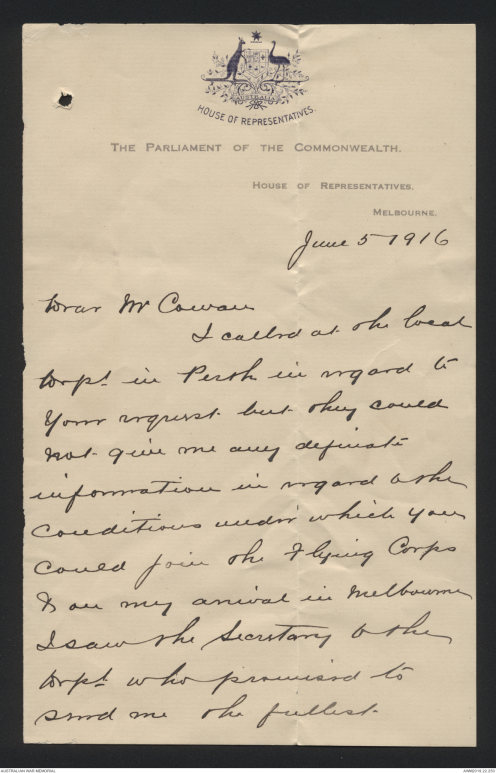 AUSTRALIA
HOUSE OF REPRESENTATIVES.
THE PARLIAMENT OF THE COMMONWEALTH.
HOUSE OF REPRESENTATIVES.
MELBOURNE.
June 5 1916
Dear Mr Cowan
I called at the local
Dept. in Perth in regard to
Your request but they could
not give me any definate
information in regard to the
conditions under which you
could join the Flying Corps
& on my arrival in Melbourne
I saw the Secretary to the
Dept who promised to
send me the fullest
AUSTRALIAN WAR MEMORIAL